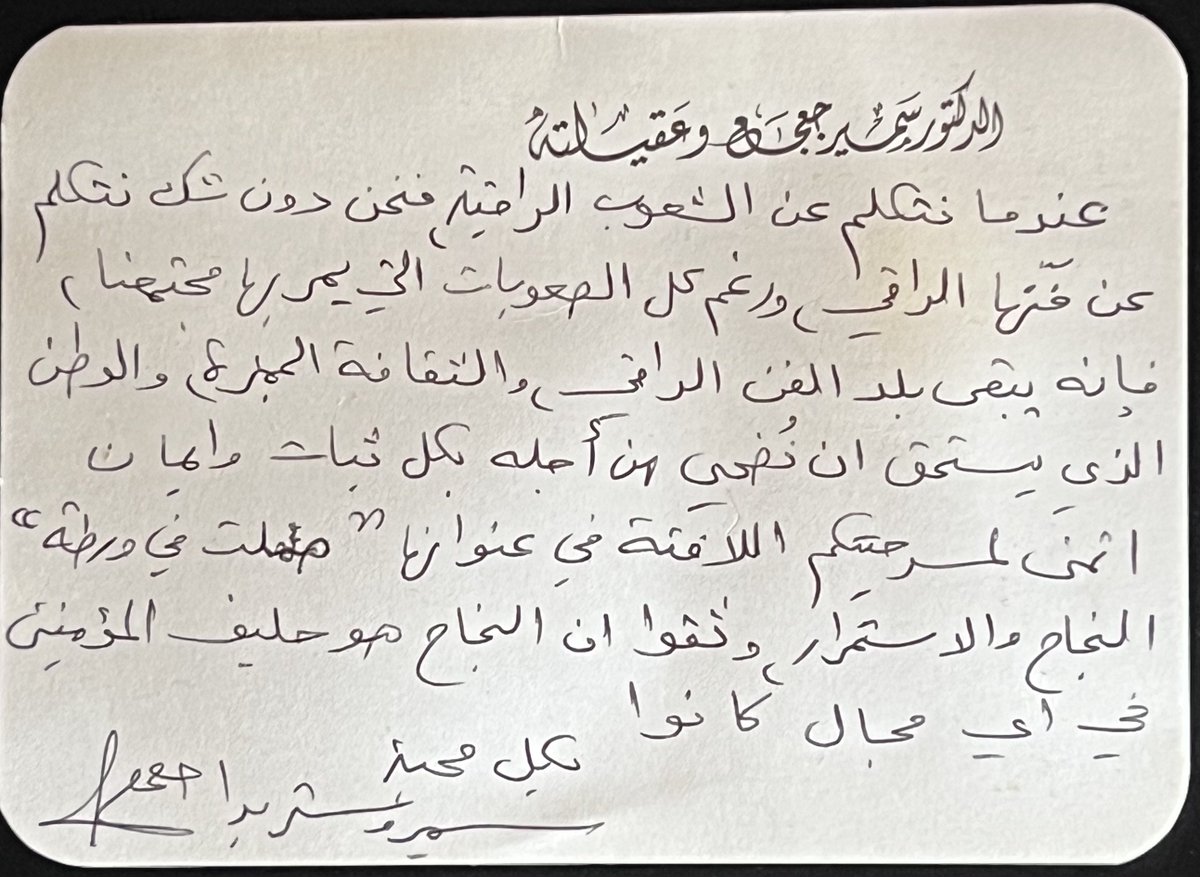 الدكتور سمير جعجع وعقيلته
عندما نتكلم عن الشعوب الراقية، فنحن دون شك نتكلم
عن فنّها الراقي، ورغم كل الصعوبات التي يمر بها مجتمعنا،
فإنه يبقى بلد الفن الراقي، والثقافة المميزة، والوطن
الذي يستحق ان نُضحي من أجله بكل ثبات وايمان
اتمنى لمسرحيتكم اللافتة في عنوانها " في ورطة"
النجاح والاستمرار، وثقوا ان النجاح هو حليف المؤمنين
في اي مجال كانوا
بكل محبة
سمير وستريدا جعجع